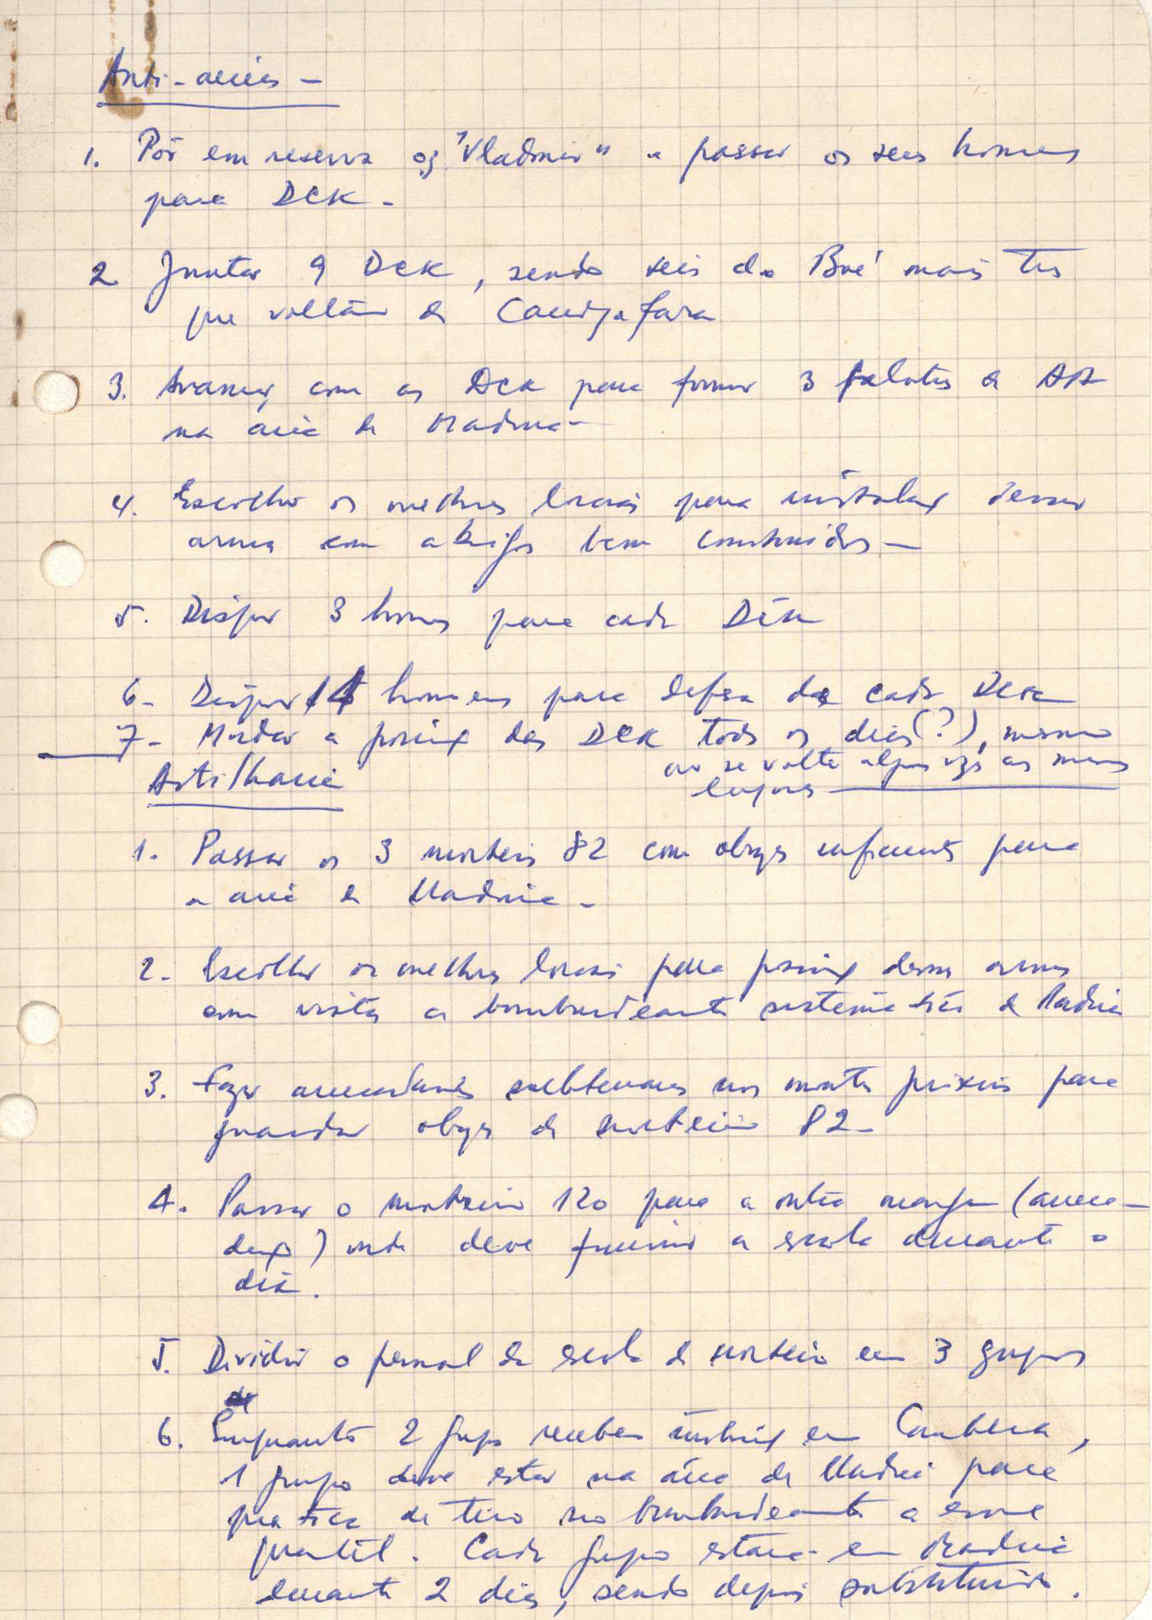 Anti-aérea -
1. Pôr em reserva os "Vladimir" e passar os seus homens
para DCK -
2 Juntar 9 DCK, sendo seis do Boé mais três
que voltam de
3. Avançar com as DCK para formar 3 de AA
na área de Madina -
4. Escolher os melhores locais para instalação dessas
armas com abrigos bem construidos -
5. Dispor 3 homens para cada DCK
6- Dispor homens para defesa de cada DCK
7- Mudar a posição das DCK todos os dias (?), mesmo
que se volte algumas vezes aos mesmos
lugares
Artilharia
1. Passar os 3 morteiros 82 com obuzes suficientes para
a área de Madina -
2- Escolher os melhores locais para posição dessas armas
com vista a bombardeamento sistemático de Madina
3. Fazer subterraneos nos matos próximos para
guardar obuzes de morteiro 82 -
4. Passar o morteiro 120 para a outra margem (arreca-
dação) onde deve funcionar a escola durante o
dia.
5. Dividir o pessoal da escola de morteiro em 3 grupos
6. Enquanto 2 grupos recebem instrução em Cambera,
1 grupo deve estar na área de Madina para
pratica de tiro no bombardeamento a esse
quartel. Cada grupo estará em Madina
durante 2 dias, sendo depois substituido.